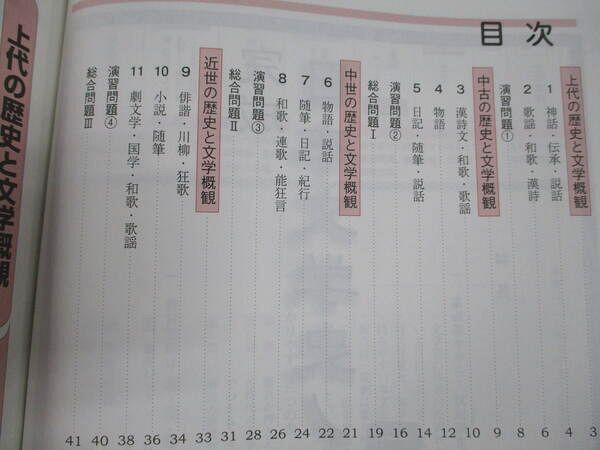 目次
上代の歴史と文学概観 3
1 神話・伝承・説話 4
2 歌謡・和歌・漢詩 6
演習問題① 8
中古の歴史と文学概観 9
3 漢詩文・和歌・歌謡 10
4 物語 12
5 日記・随筆・説話 14
演習問題② 16
総合問題Ⅰ 19
中世の歴史と文学概観 21
6 物語・説話 22
7 随筆・日記・紀行 24
8 和歌・連歌・能狂言 26
演習問題③ 28
総合問題Ⅱ 31
近世の歴史と文学概観 33
9 俳諧・川柳・狂歌 34
10 小説・随筆 36
11 劇文学・国学・和歌・歌謡 38
演習問題④ 40
総合問題Ⅲ 41
上代の歴史と文学概観